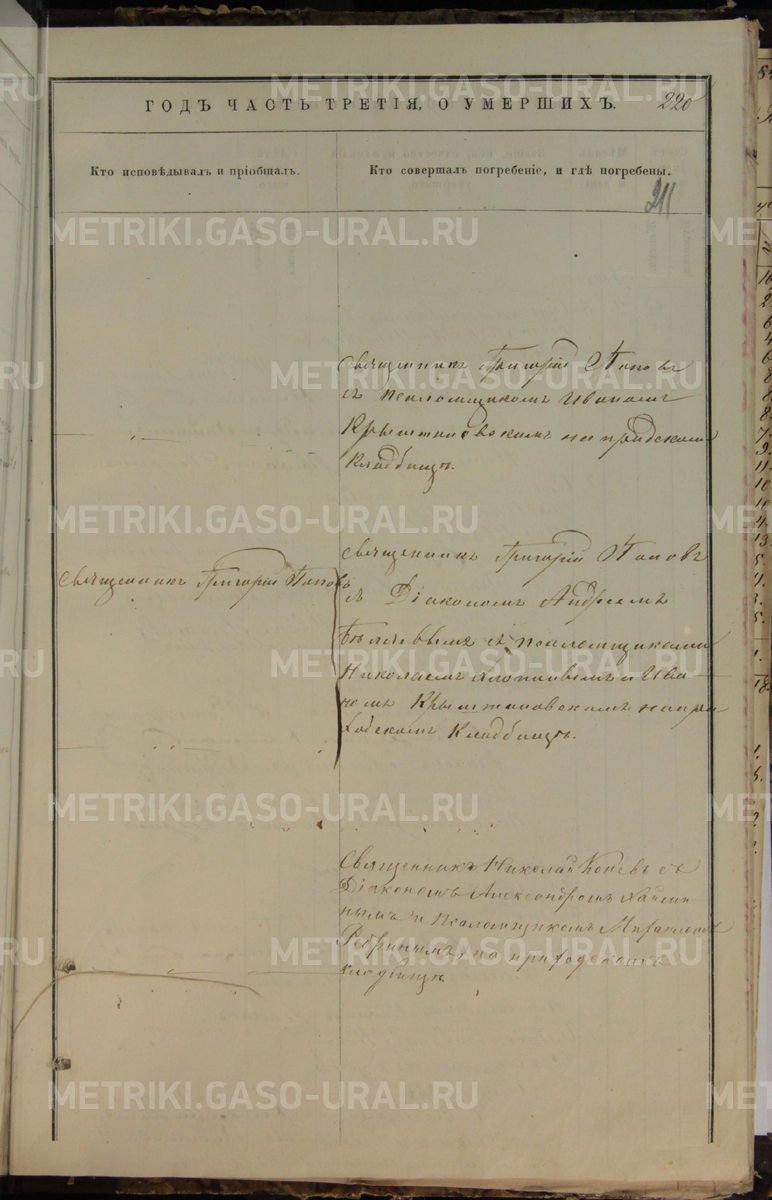 ГОДЪ ЧАСТЬ ТРЕТІЯ, О УМЕРШИХЪ. 220
Кто исповѣдывалъ и пріобщалъ.
Кто совершалъ погребеніе, и гдѣ погребены.
211
Священникъ Григорій Поповъ
съ псаломщикомъ Иваномъ
Крыштановскимъ на приходскомъ
кладбищѣ.
Священникъ Григорій Поповъ
Священникъ Григорій Поповъ
съ Діакономъ Андреемъ
съ псаломщиками
Николаемъ и Ива-
номъ Крыштановскимъ на при-
ходскомъ кладбищѣ.
Священникъ Николай съ
Діакономъ Александромъ
нымъ и псаломщикомъ
на приходскомъ
кладбищѣ
METRIKI.GASO-URAL.RU